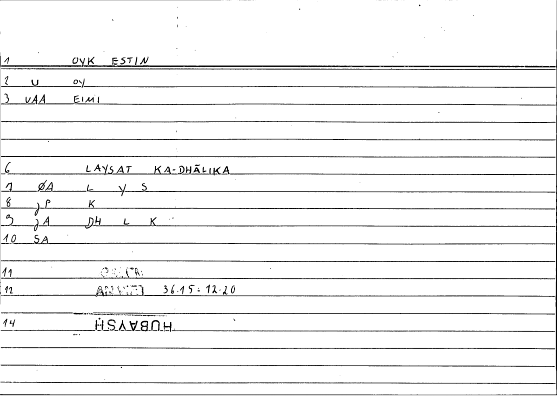 1 OYK ESTIN
2 U OY
3 VAA EIMI
6 LAYSAT KA-DHĀLIKA
7 ØA L Y S
8 jP K
9 jA DH L K
10 SA
11
12 36.15: 12-20
14 HUBAYSH